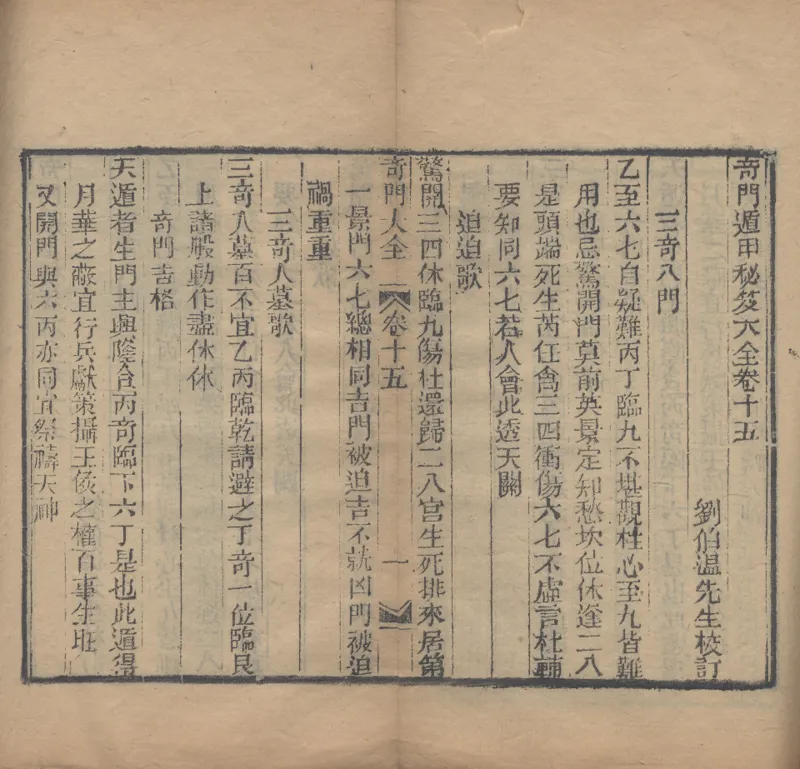 奇門遁甲秘笈大全卷十五
劉伯温先生校訂
三奇八門
乙至六七自疑難丙丁臨九不堪觀柱心至九皆難
用也忌驚開門莫前英景定知愁坎位休逢二八
是頭端死生芮任禽三四衝傷六七不虛言杜輔
要知同六七若人會此透天關
迫迫歌
驚開三四休臨九傷杜還歸二八宮生死排來居第
奇門大全 卷十五 一
一景門六七總相同吉門被迫吉不就凶門被迫
禍重重
三奇入墓歌
三奇入墓百不宜乙丙臨乾請避之丁奇一位臨艮
上諸般動作盡休休
奇門吉格
天遁者生門主與陰合丙奇臨下六丁是也此遁得
月華之蔽宜行兵獻策攝王侯之權百事生旺
又開門與六丙亦同宜祭禱天神